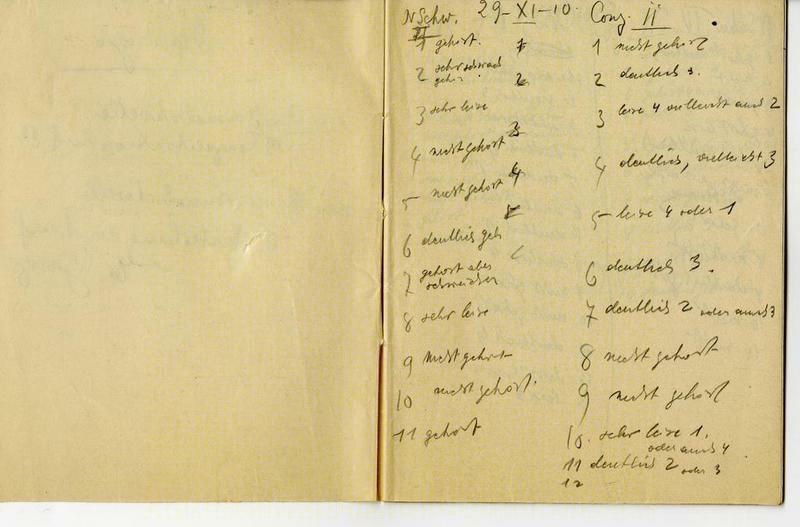 N Schw. 29-XI-10. Conz. II
II
1 gehört.
2 sehr schwach
gehör.
3 sehr leise
4 nicht gehört
5 nicht gehört
6 deutlich geh
7 gehört aber
schwächer
8 sehr leise
9 nicht gehört
10 nicht gehört.
11 gehört
1
2
3
4
5
6
1 nicht gehört
2 deutlich 3.
3 leise 4 vielleicht auch 2
4 deutlich, vielleicht 3
5 leise 4 oder 1
6 deutlich 3.
7 deutlich 2 oder auch 3
8 nicht gehört
9 nicht gehört
10. sehr leise 1.
oder auch 4
11 deutlich 2 oder 3
12